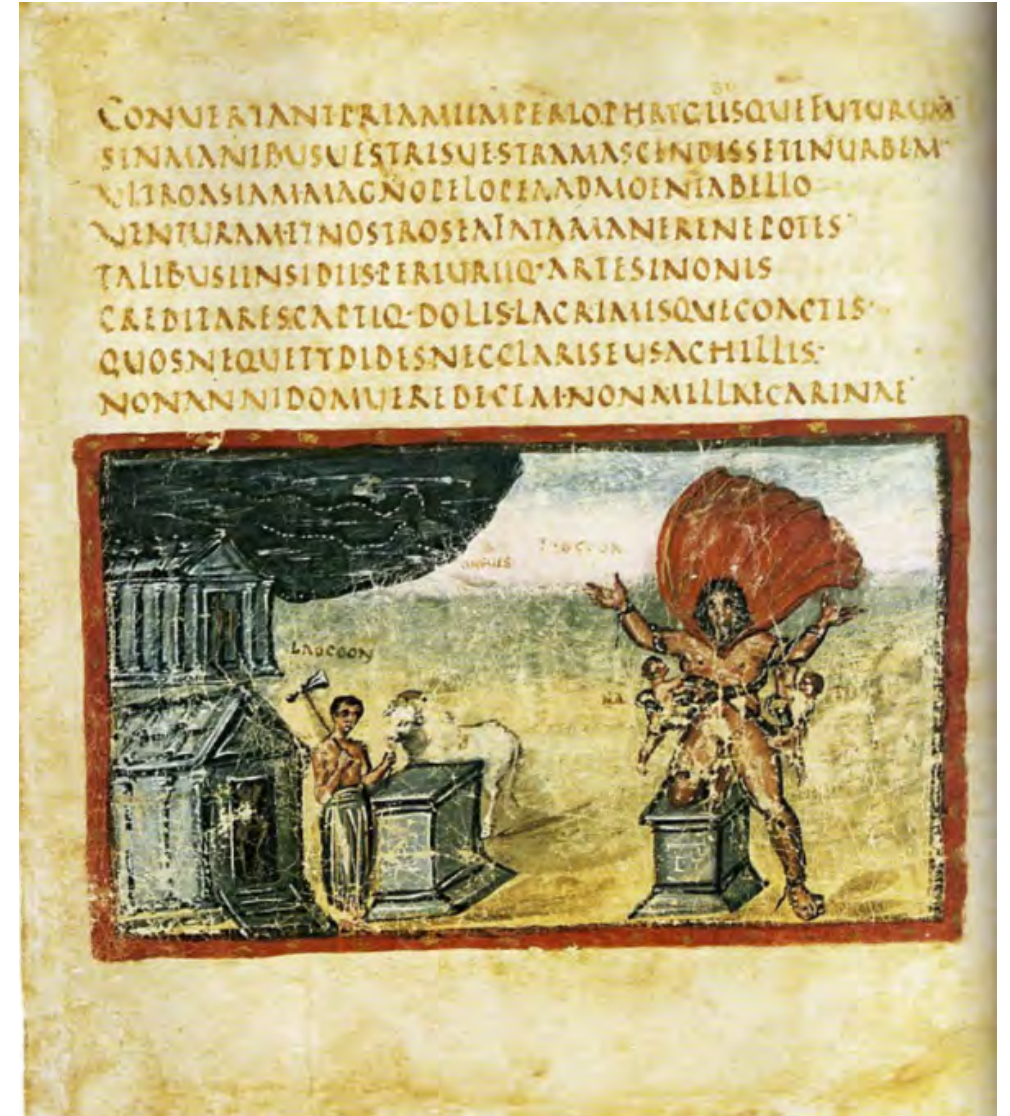 BU
CONVERTANTPRIAMIIMPERIOPHRYGIISQUEFUTURUM
SINMANIBUSUESTRISUESTRAMASCENDISSETINURBEM·
ULTROASIAMMAGNOPELOPEAADMOENIABELLO
UENTURAMETNOSTROSEAFATAMANERENEPOTES
TALIBUSIINSIDIIS·PERIURIIQ·ARTESINONIS
CREDITARESCAPTIQ·DOLIS·LACRIMISQUECOACTIS·
QUOSNEQUETYDIDESNECCLARISEUSACHILLIS·
NONANNIDOMUEREDECEM·NONMILLAECARINAE
ANGUES
LAOCOON
LAOCOON
NA TI